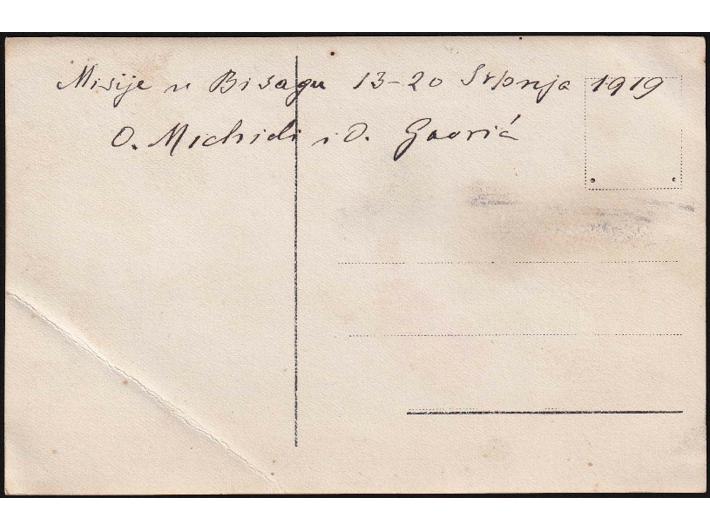 Misije u Bisagu 13-20 Srpnja 1919
O. Michieli i O. Gavrić